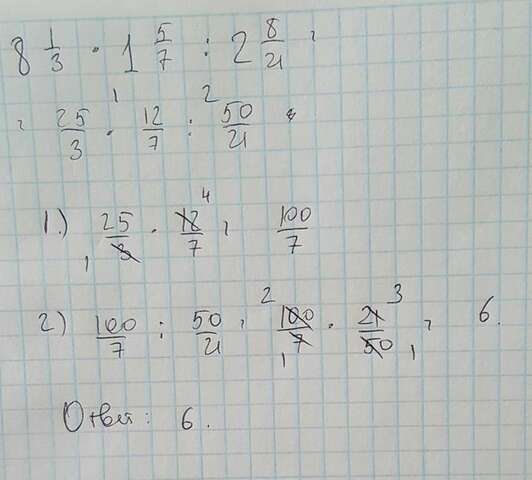 8 1/3 · 1 5/7 : 2 8/21 =
= 25/3 · 12/7 : 50/21 =
1.) 25/3 · 12/7 = 100/7
2) 100/7 : 50/21 = 100/7 · 21/50 = 6.
Ответ: 6.